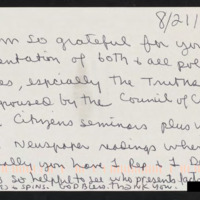 8/21/
m so grateful for you
entation of both & all pol
es, espcially the Truths
poused by the Council of C
Citizens seminars plus
Newspaper readings wher
ally you have 1 Rep & 1 D
so helpful to see who presents facts
& spins. God Bless. Thank you.